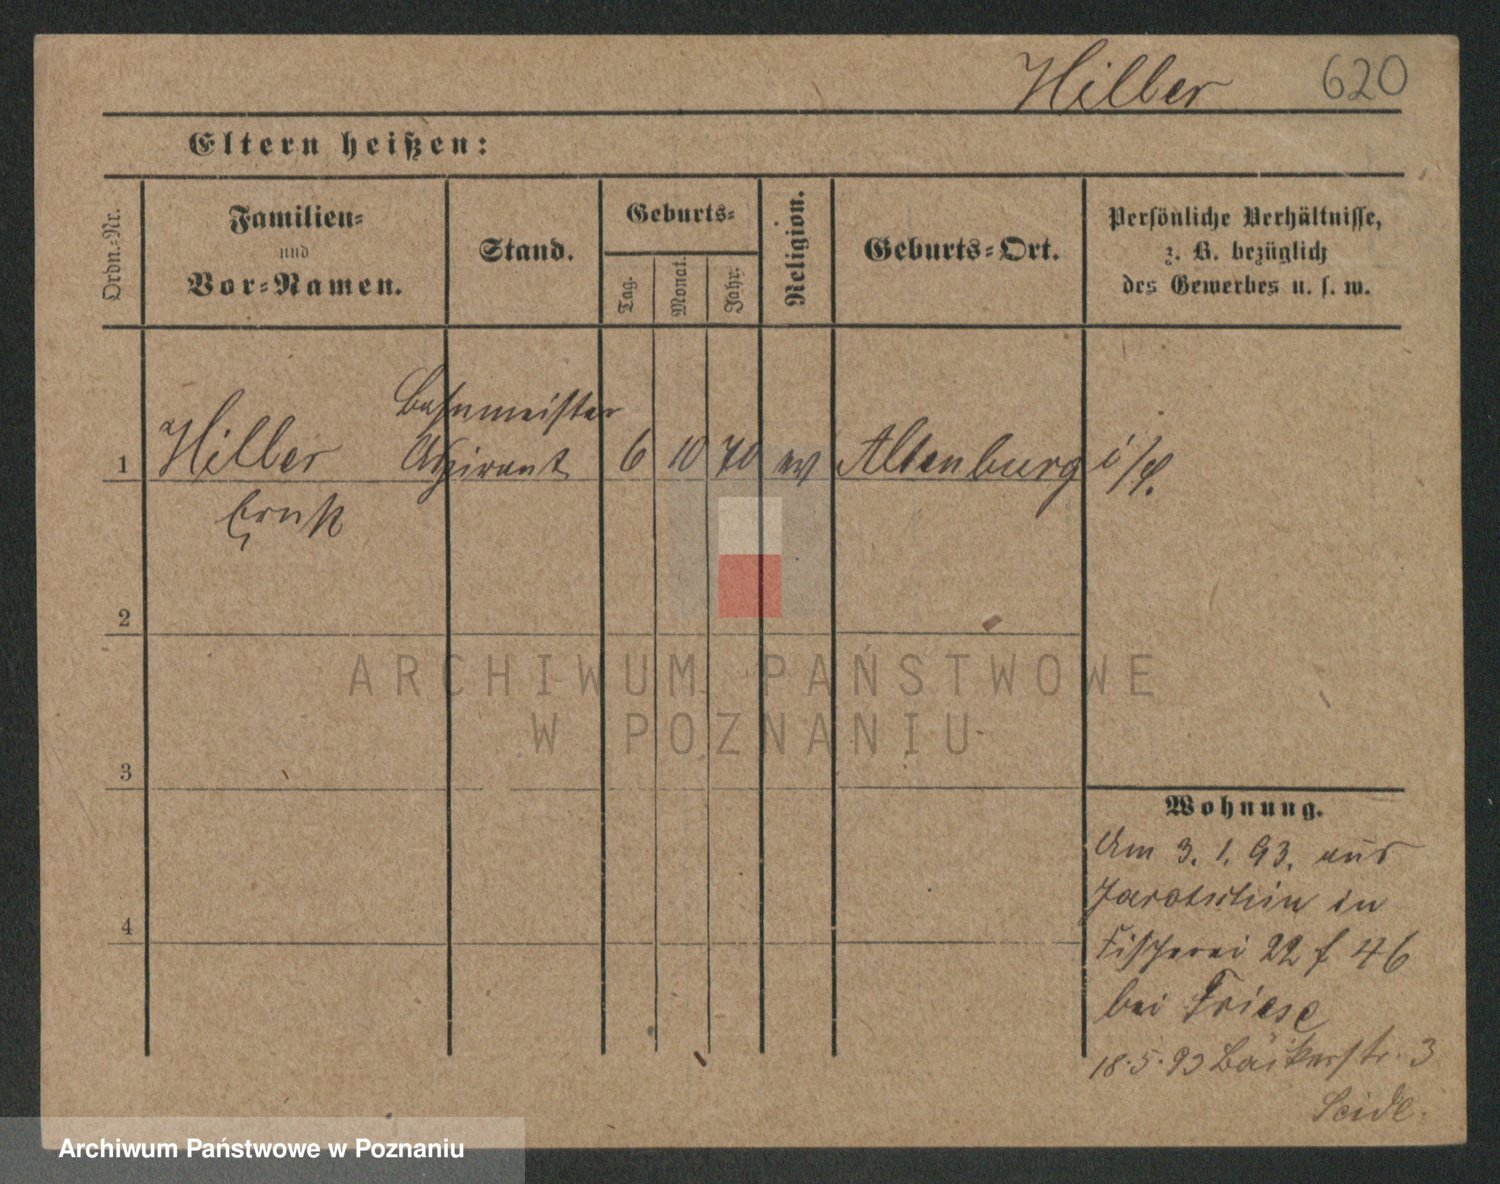 Hiller 620
Eltern heißen:
Ordn.-Nr.
Familien-
und
Vor-Namen.
Stand.
Geburts-
Tag.
Monat.
Jahr.
Religion.
Geburts-Ort.
Persönliche Verhältnisse,
z. B. bezüglich
des Gewerbes u. s. w.
Bahnmeister
1 Hiller Aspirant 6 10 70 ev Altenburg i/
Ernst
2
ARCHIWUM PAŃSTWOWE
W POZNANIU
3
Wohnung.
Am 3. 1. 93. aus
Jarotschin in
4
Fischerei 22 f 46
bei Friese
18.5.93 Bäckerstr. 3
Seidl.
Archiwum Państwowe w Poznaniu